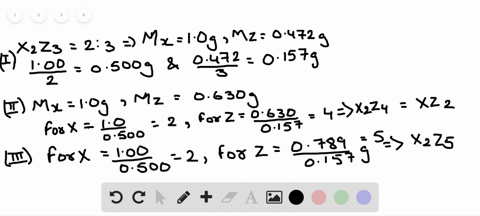 (I) X2Z3 = 2:3 => Mx=1.0g, Mz=0.472g
1.00/2 = 0.500g & 0.472/3 = 0.157g
(II) Mx=1.0g, Mz = 0.630g
for X = 1.0/0.500 = 2, for Z = 0.630/0.157 = 4 => X2Z4 = XZ2
(III) for X = 1.00/0.500 = 2, for Z = 0.789/0.157 g = 5 => X2Z5